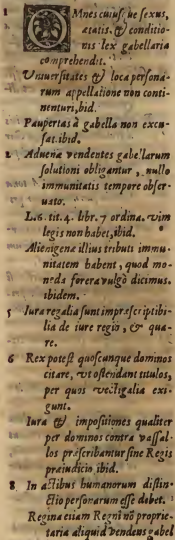 1 OMnes cuiusque sexus,
ætatis & conditio-
nis lex gabellaria
comprehendit.
Vniuersitates & loca persona-
rum appellatione non conti-
nentur, ibid.
Paupertas à gabella non excu-
sat. ibid.
2 Aduenæ vendentes gabellarum
solutioni obligantur, nullo
immunitatis tempore obser-
uato.
L.6. tit. 4. libr. 7 ordina. vim
legis non habet, ibid.
Alienigenæ illius tributi immu-
nitatem habent, quod mo-
neda forera vulgò dicimus.
ibidem.
5 Iura regalia sunt impræscriptibi-
lia de iure regio, & qua-
re.
6 Rex potest quoscunque dominos
citare, vt ostendant titulos,
per quos vectigalia exi-
gunt.
Iura & impositiones qualiter
per dominos contra vassal-
los præscribantur sine Regis
præiudicio ibid.
8 In actibus humanorum distin-
ctio personarum esse debet.
Regina etiam Regni nō proprie-
taria aliquid vendens gabel